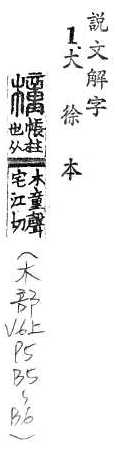 説文解字
1.大徐本
橦帳柱也从木童聲宅江切
(木部
V.6上
P5
B5
～
B6)